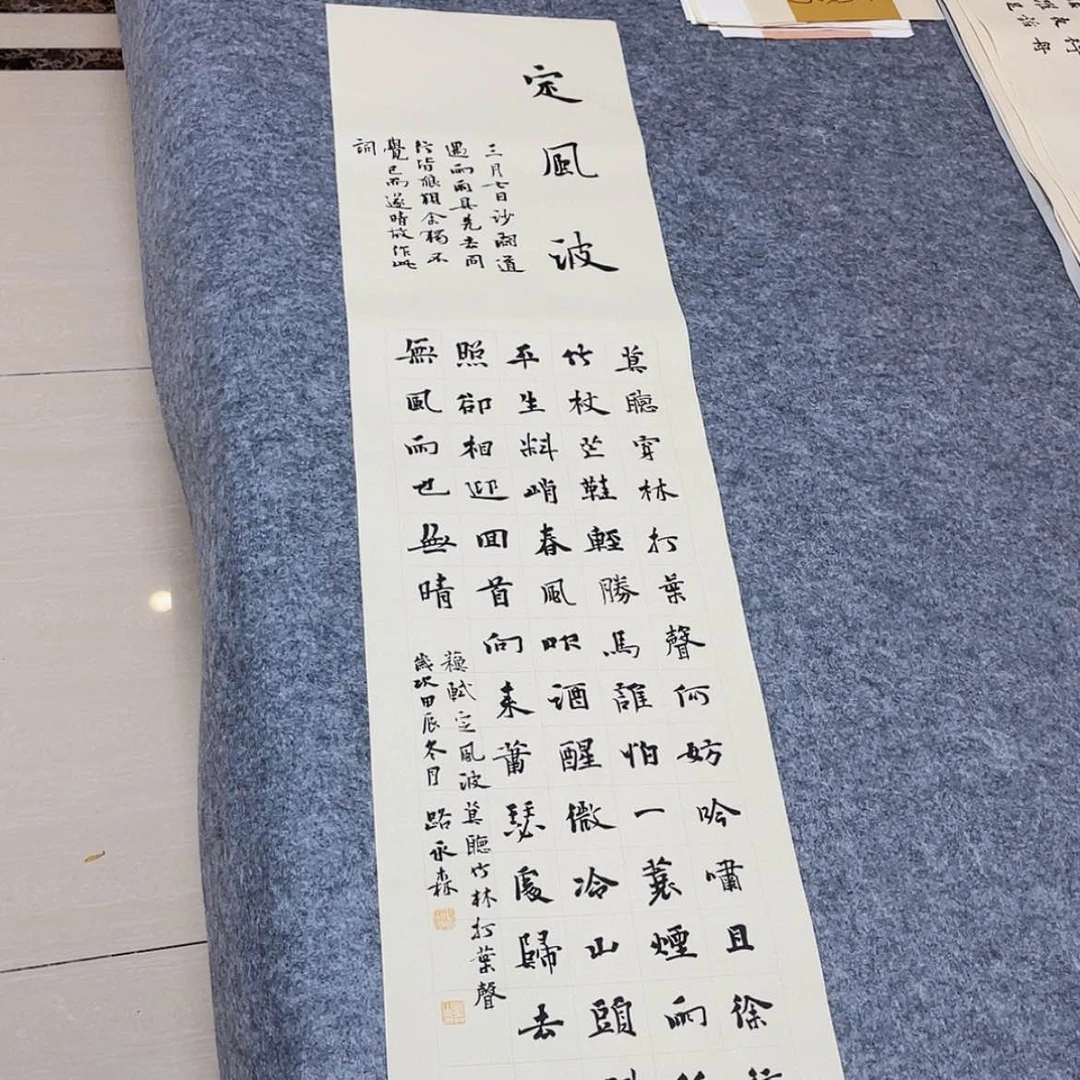 定風波
三月七日沙湖道
遇雨雨具先去同
行皆狼狽余獨不
覺已而遂晴故作此
詞
莫聽穿林打葉聲何妨吟嘯且徐行
竹杖芒鞋輕勝馬誰怕一蓑煙雨
平生料峭春風吹酒醒微冷山頭
照卻相迎回首向來蕭瑟處歸去
無風雨也無晴
蘇軾定風波莫聽竹林打葉聲
歲次甲辰冬月路永森